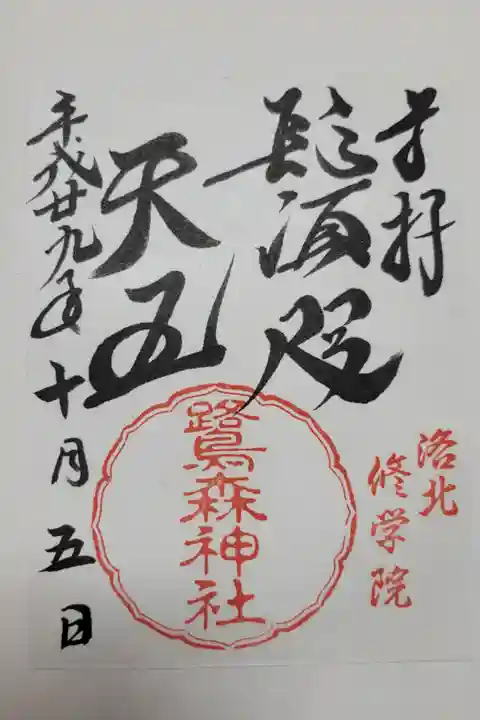 奉拝
洛北
修学院
鬚咫
天王
鷺森神社
平成廿九年十月五日